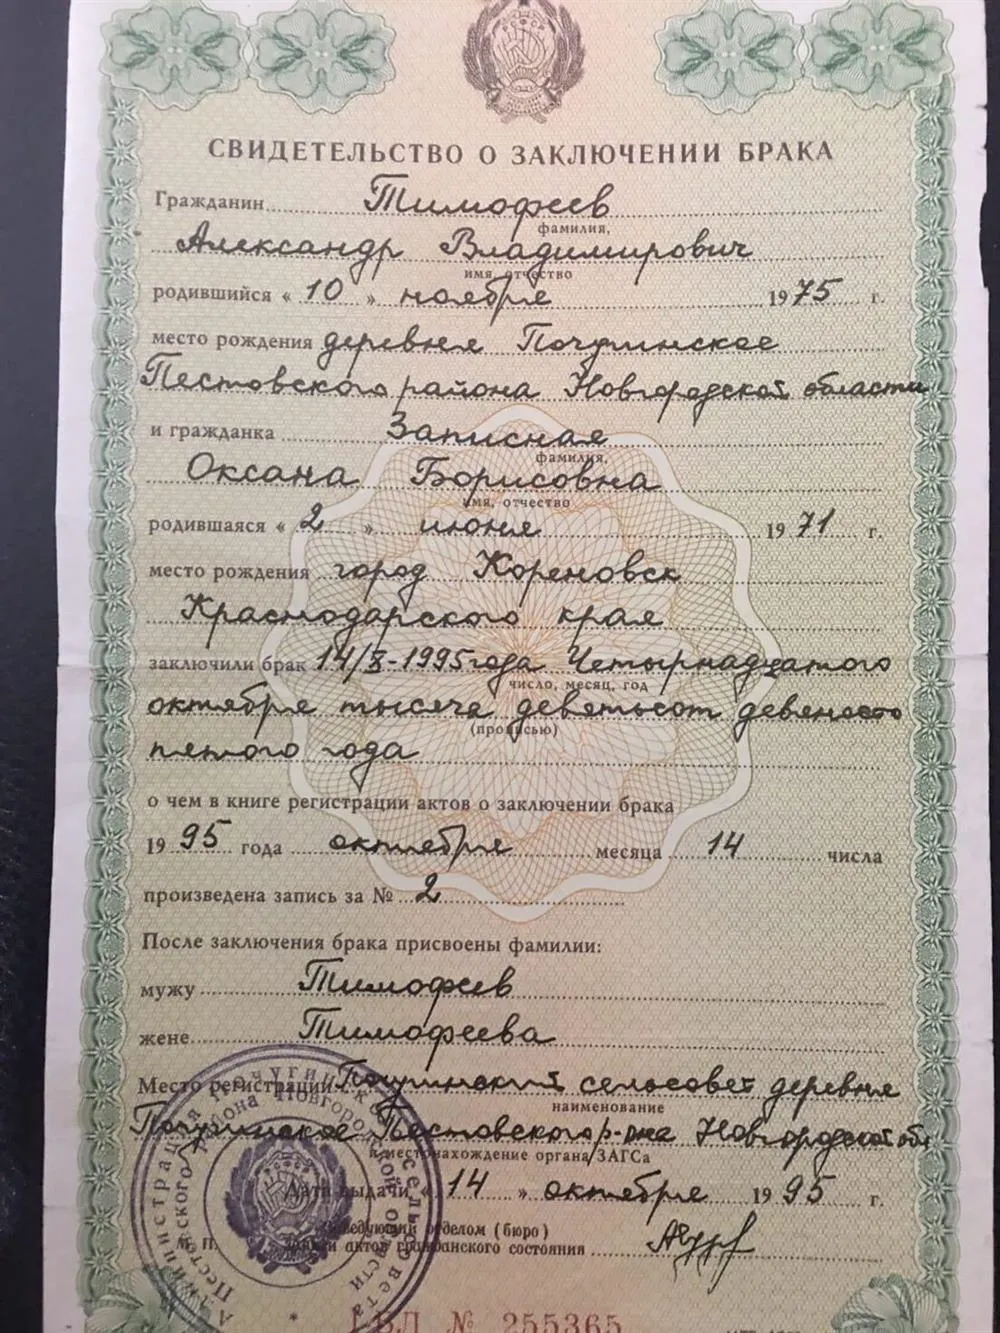 СВИДЕТЕЛЬСТВО О ЗАКЛЮЧЕНИИ БРАКА
Гражданин Тимофеев
фамилия,
Александр Владимирович
имя, отчество
родившийся « 10 » ноября 1975 г.
место рождения деревня Почугинское
Пестовского района Новгородской области
и гражданка Записная
фамилия,
Оксана Борисовна
имя, отчество
родившаяся « 2 » июня 1971 г.
место рождения город Кореновск
Краснодарского края
заключили брак 14/X-1995 года Четырнадцатого
число, месяц, год
октября тысяча девятьсот девяносто
(прописью)
пятого года
о чем в книге регистрации актов о заключении брака
1995 года октября месяца 14 числа
произведена запись за № 2
После заключения брака присвоены фамилии:
мужу Тимофеев
жене Тимофеева
Место регистрации Почугинский сельсовет деревня
наименование
Почугинское Пестовского р-она Новгородской обл
и местонахождение органа ЗАГСа
Дата выдачи « 14 » октября 1995 г.
Заведующий отделом (бюро)
М. П. записи актов гражданского состояния
Администрация Почугинского сельсовета
Пестовского района Новгородской области
№ 255365